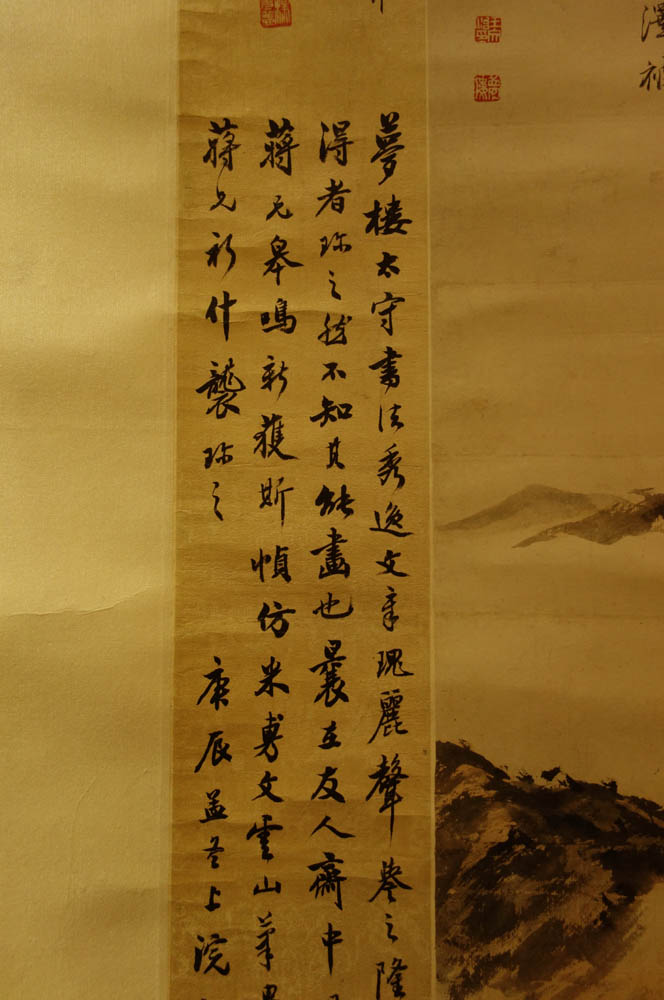 澤
夢樓太守書法秀逸文章瑰麗聲譽之隆
得者珍之然不知其能畫也曩在友人齋中
蔣兄皋鳴新獲斯幀仿米専文雲山筆墨
蔣兄什襲珍之 庚辰孟冬上浣